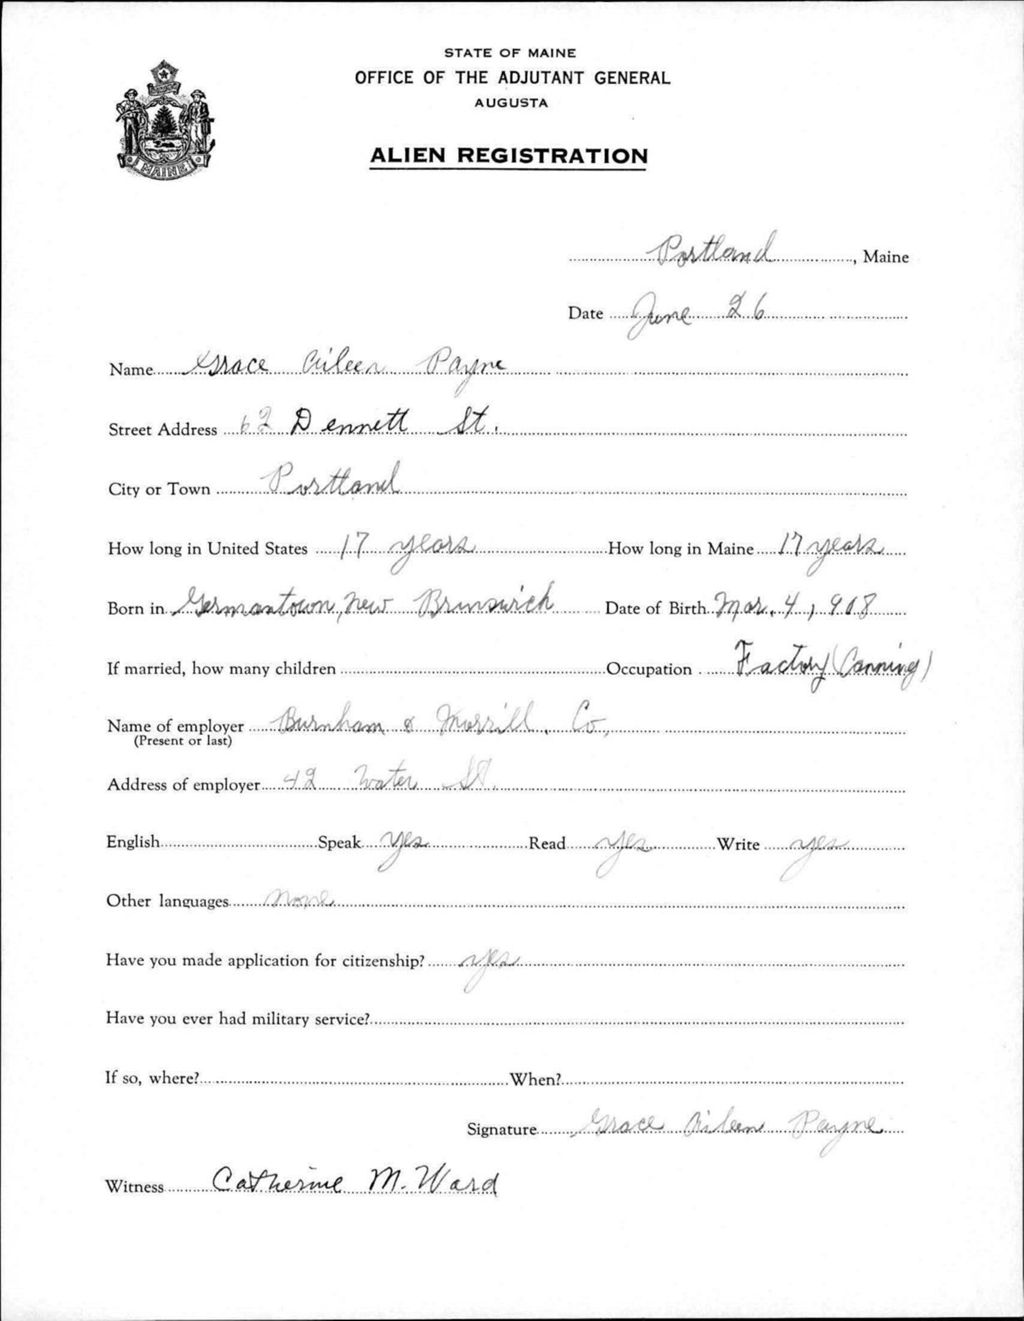 STATE OF MAINE
OFFICE OF THE ADJUTANT GENERAL
AUGUSTA
ALIEN REGISTRATION
MAINE
Portland, Maine
Date June 26
Name Grace Aileen Payne
Street Address 62 Dennett St.
City or Town Portland
How long in United States 17 years How long in Maine 17 years
Born in Germantown, New Brunswick Date of Birth Mar. 4, 1908
If married, how many children Occupation Factory (Canning)
Name of employer Burnham & Morrill. Co.
(Present or last)
Address of employer 42 Water St.
English Speak yes Read yes Write yes
Other languages None
Have you made application for citizenship? yes
Have you ever had military service?
If so, where? When?
Signature Grace Aileen Payne
Witness Catherine M. Ward